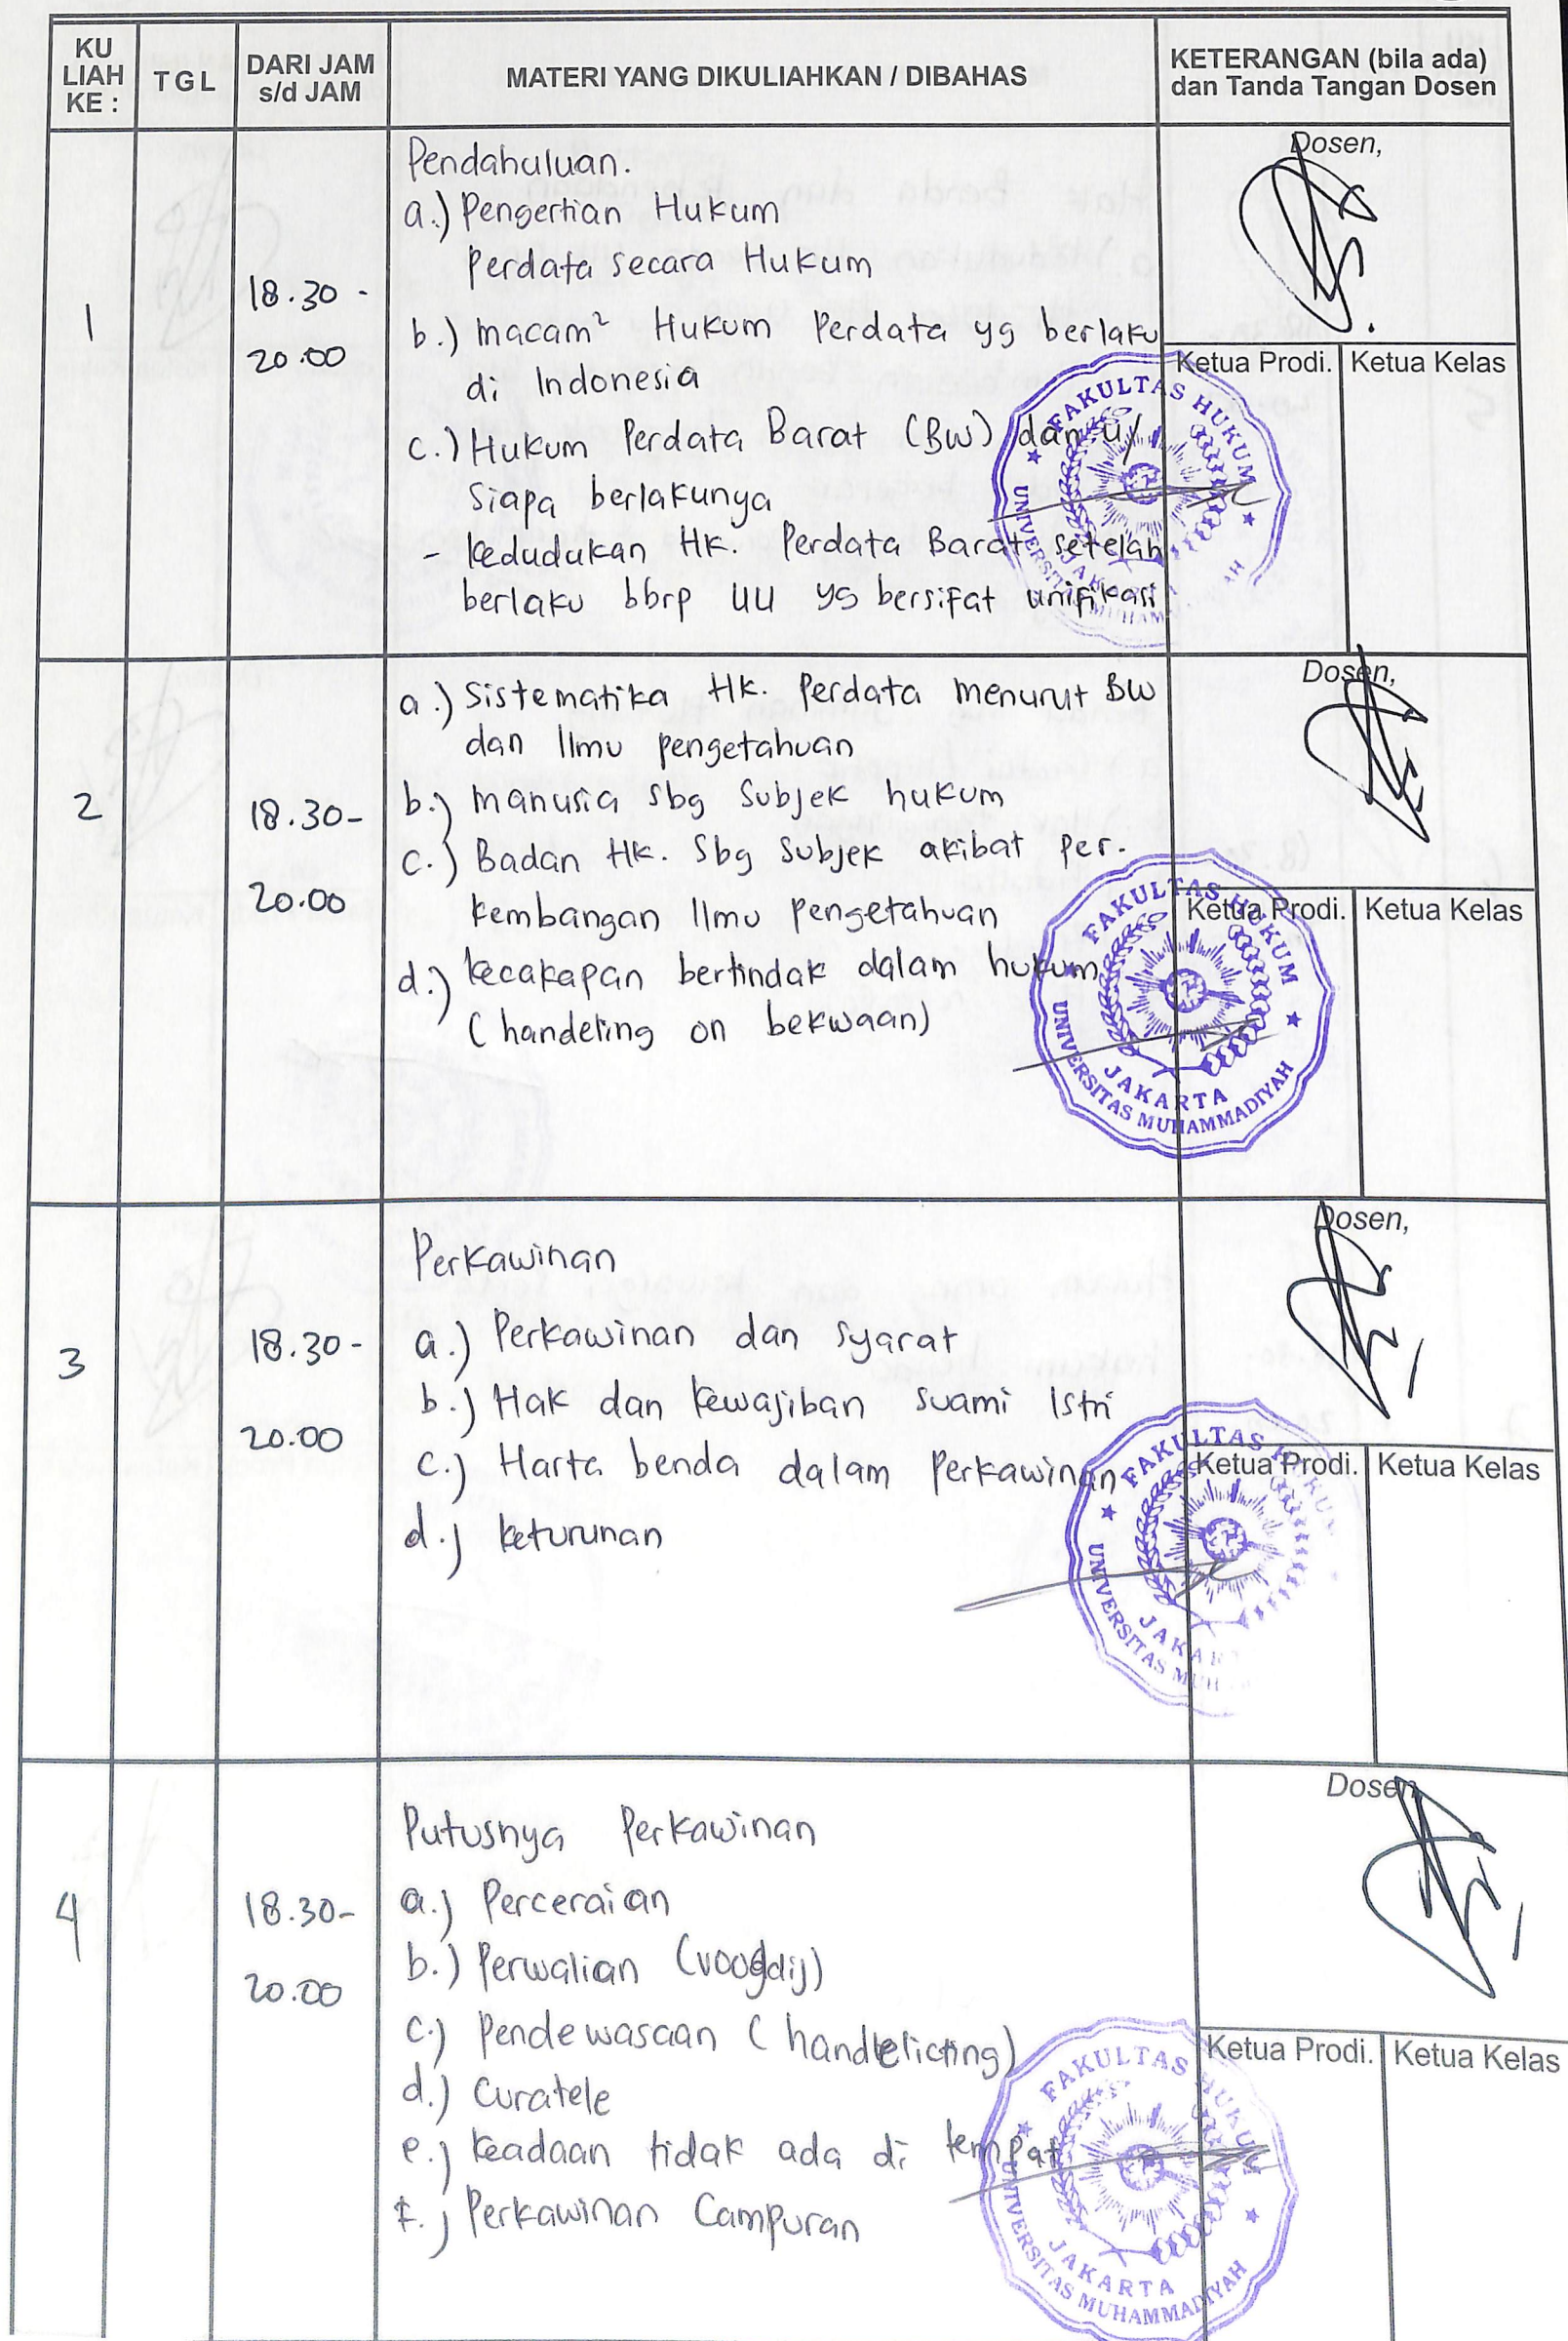 KU
LIAH
KE :
TGL
DARI JAM
s/d JAM
MATERI YANG DIKULIAHKAN / DIBAHAS
KETERANGAN (bila ada)
dan Tanda Tangan Dosen
1
18.30 -
20.00
Pendahuluan.
a.) Pengertian Hukum
Perdata secara Hukum
b.) macam² Hukum Perdata yg berlaku
di Indonesia
c.) Hukum Perdata Barat (BW) dan u/
siapa berlakunya
- kedudukan Hk. Perdata Barat setelah
berlaku bbrp UU yg bersifat unifikasi
Dosen,
Ketua Prodi. Ketua Kelas
FAKULTAS HUKUM
UNIVERSITAS MUHAM
JAKARTA
2
18.30-
20.00
a.) Sistematika Hk. Perdata menurut BW
dan Ilmu pengetahuan
b.) manusia sbg Subjek hukum
c.) Badan Hk. Sbg Subjek akibat per-
kembangan Ilmu pengetahuan
d.) kecakapan bertindak dalam hukum
(handeling on bekwaan)
Dosen,
Ketua Prodi. Ketua Kelas
FAKULTAS HUKUM
JAKARTA
UNIVERSITAS MUHAMMADIYAH
3
18.30-
20.00
Perkawinan
a.) Perkawinan dan syarat
b.) Hak dan kewajiban suami Istri
c.) Harta benda dalam Perkawinan
d.) keturunan
Dosen,
Ketua Prodi. Ketua Kelas
FAKULTAS HUKU
JAKAR
UNIVERSITAS MUH
4
18.30-
20.00
Putusnya Perkawinan
a.) Perceraian
b.) Perwalian (voogdij)
c.) Pendewasaan (handelicting)
d.) Curatele
e.) keadaan tidak ada di tempat
f.) Perkawinan Campuran
Dosen
Ketua Prodi. Ketua Kelas
FAKULTAS HUKUM
JAKARTA
UNIVERSITAS MUHAMMADIYAH